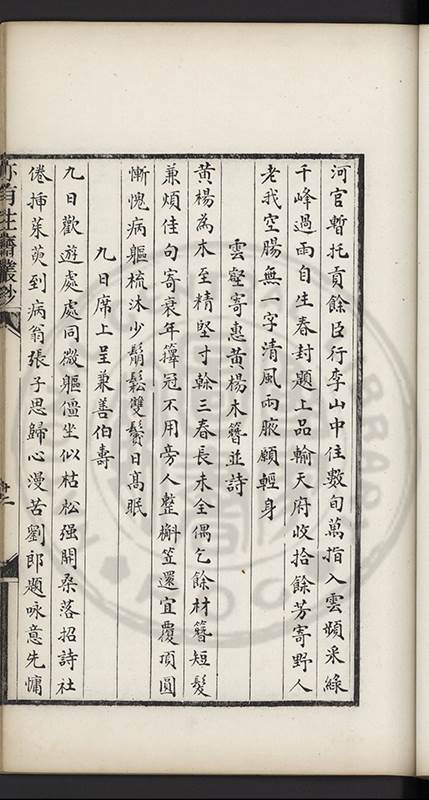 河官暫托貢餘臣行李山中住數旬萬指入雲頻采綠
千峰過雨自生春封題上品輸天府收拾餘芳寄野人
老我空腸無一字清風兩腋願輕身
雲壑寄惠黃楊木簪並詩
黃楊為木至精堅寸榦三春長未全偶乞餘材簪短髮
兼煩佳句寄衰年籜冠不用旁人整槲笠還宜覆頂圓
慚愧病軀梳沐少鬅鬆雙鬢日高眠
九日席上呈兼善伯壽
九日歡遊處處同微軀僵坐似枯松强開桑落招詩社
倦插茱萸到病翁張子思歸心漫苦劉郎題咏意先慵